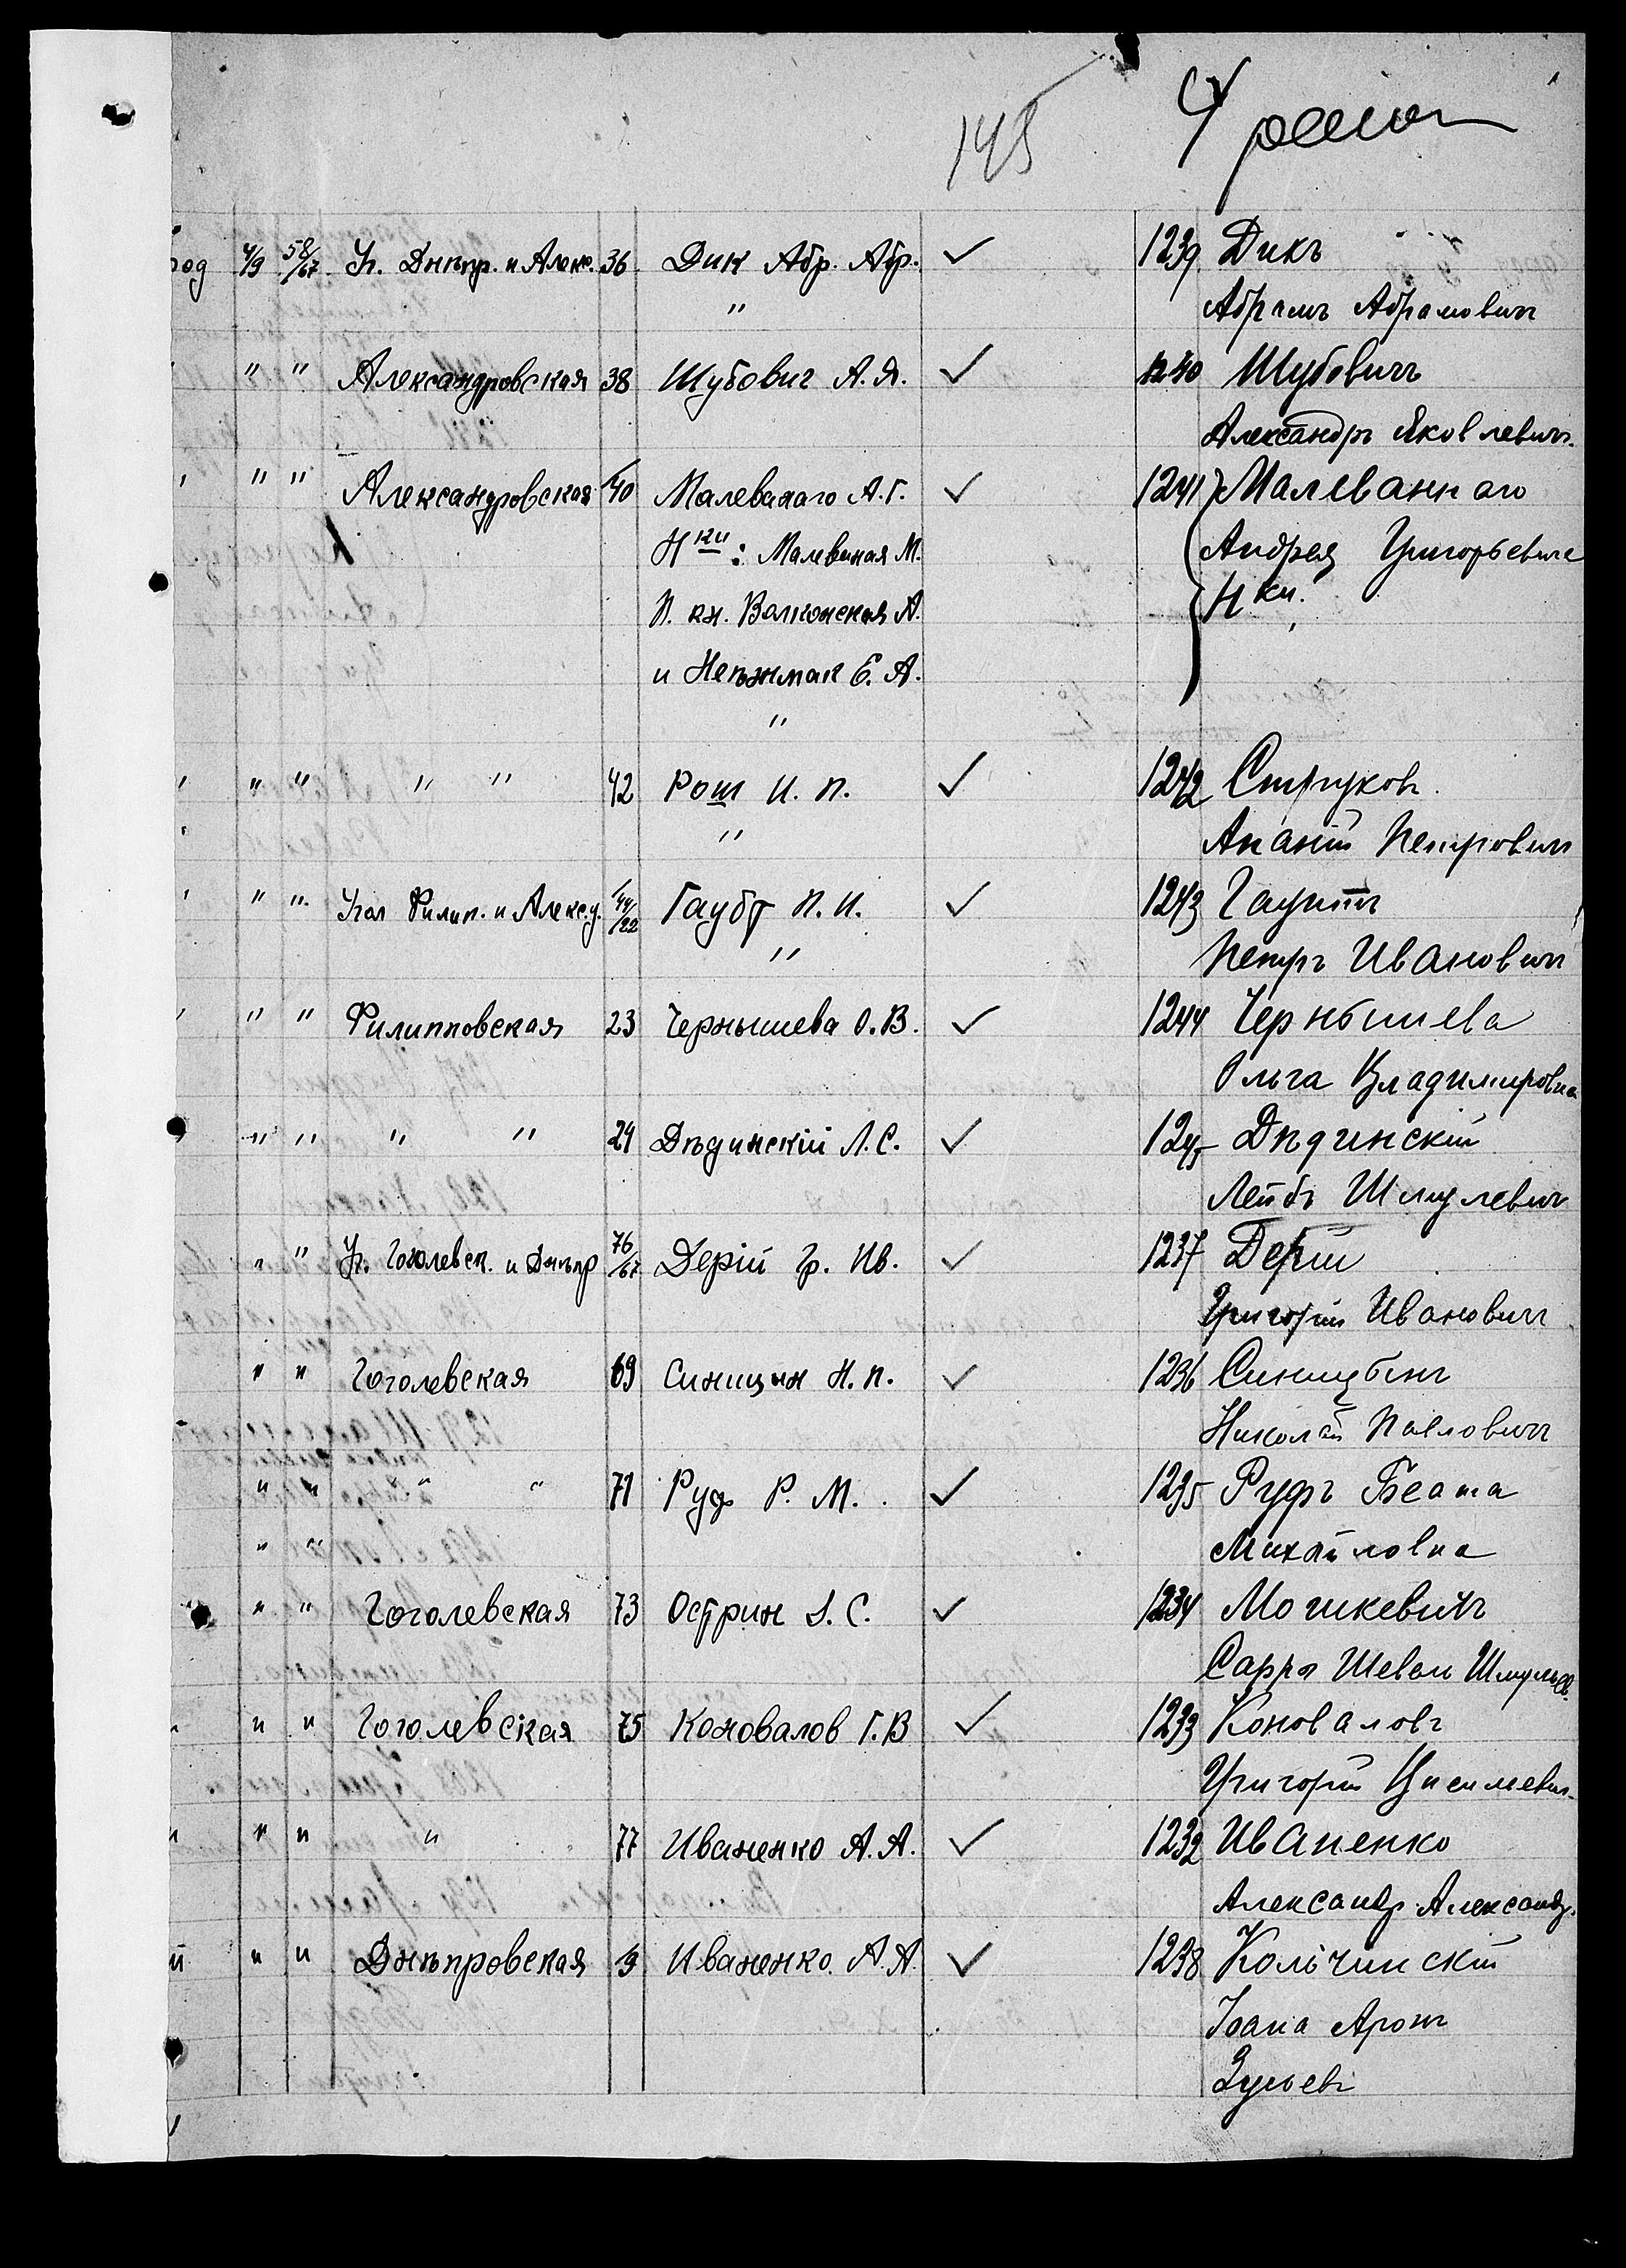 145 4 район
род 4/9 58/67 Уг. Днѣпр. и Алекс. 36 Дик Абр. Абр. ✓ 1239 Дикъ
" Абрамъ Абрамовичъ
" " Александровская 38 Шубович А. Я. ✓ 1240 Шубовичъ
Александръ Яковлевичъ.
" " Александровская 40 Малеванаго А. Г. ✓ 1241 Малеваннаго
Нки: Малеваная М. Андрея Григорьевича
П. кн. Волконская А. Нки.
и Неъжмак Е. А.
"
" " " " 42 Рош И. П. ✓ 1242 Струковъ.
" Ананій Петровичъ
" " Угол Филип. и Алекс. у. 44/22 Гаубт П. И. ✓ 1243 Гауптъ
" Петръ Ивановичъ
" " Филипповская 23 Чернышева О. В. ✓ 1244 Чернышева
Ольга Владимировна
" " " " 24 Дѣдинскій Л. С. ✓ 1245 Дѣдинскій
Лейбъ Шмулевичъ
" " Уг. Гоголевск. и Днѣпр 76/67 Дерій Гр. Ив. ✓ 1237 Дерій
Григорій Ивановичъ
" " Гоголевская 69 Синицын Н. П. ✓ 1236 Синицынъ
Николай Павловичъ
" " " " 71 Руф Р. М. ✓ 1235 Руфъ Беата
" " Михайловна
" " Гоголевская 73 Острин І. С. ✓ 1234 Мошкевичъ
Сарра Шевель Шмульев.
" " Гоголевская 75 Коновалов Г. В ✓ 1233 Коноваловъ
Григорій
" " " 77 Иваненко А. А. ✓ 1232 Иваненко
Александр Александр.
й " " Днѣпровская 9 Иваненко. А. А. ✓ 1238 Кольчинскій
Іоана Аронъ
Зусьевъ